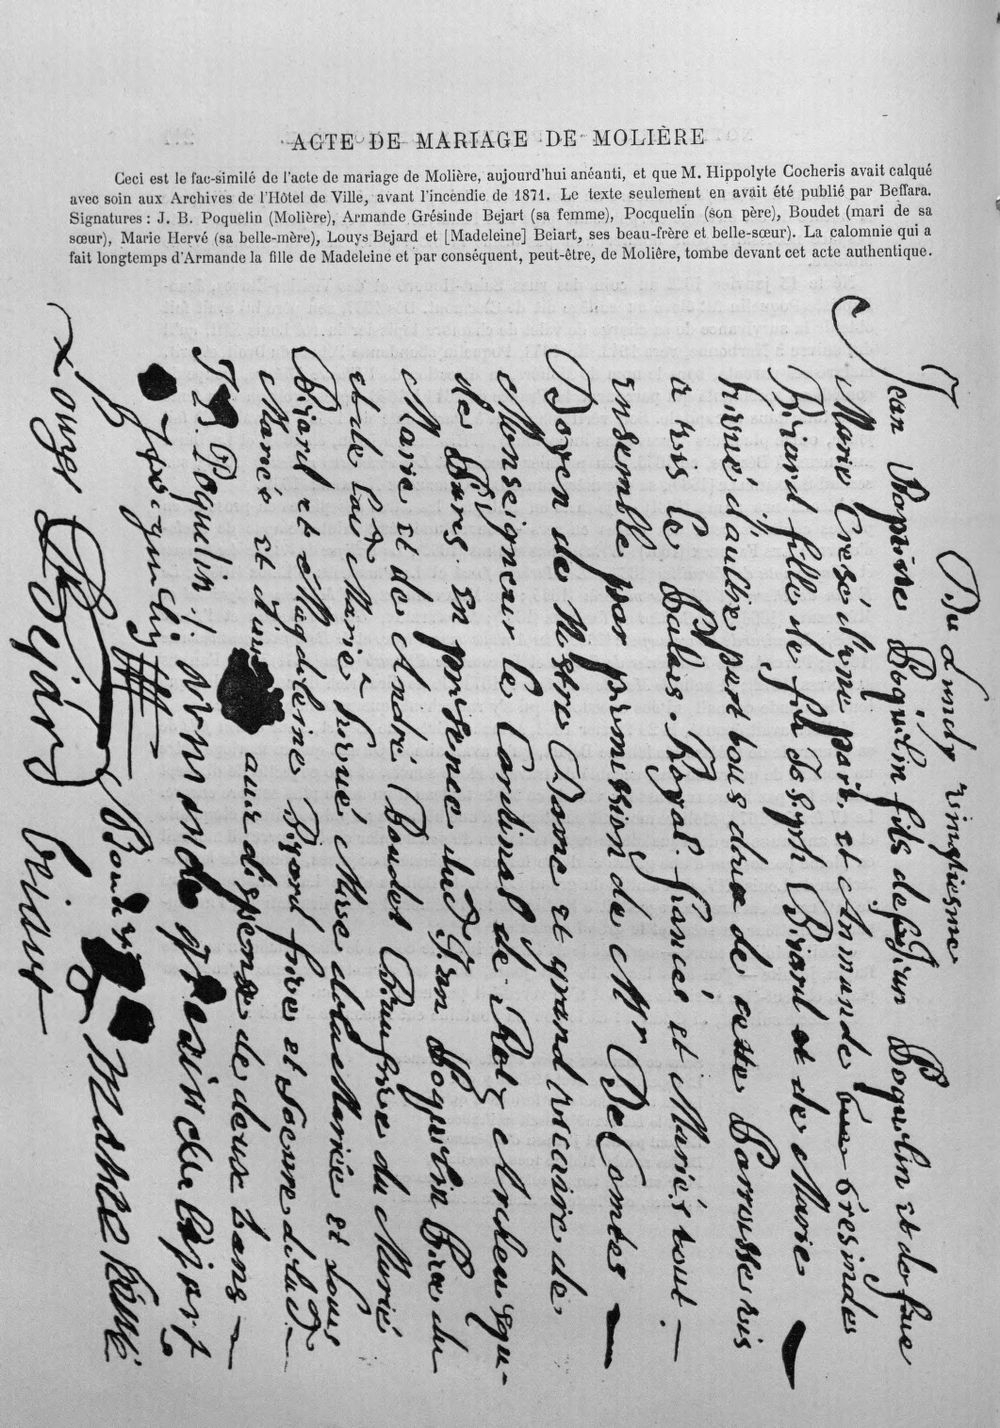 ACTE DE MARIAGE DE MOLIÈRE
Ceci est le fac-similé de l'acte de mariage de Molière, aujourd'hui anéanti, et que M. Hippolyte Cocheris avait calqué
avec soin aux Archives de l'Hôtel de Ville, avant l'incendie de 1871. Le texte seulement en avait été publié par Beffara.
Signatures : J. B. Poquelin (Molière), Armande Grésinde Bejart (sa femme), Pocquelin (son père), Boudet (mari de sa
sœur), Marie Hervé (sa belle-mère), Louys Bejard et [Madeleine] Beiart, ses beau-frère et belle-sœur). La calomnie qui a
fait longtemps d'Armande la fille de Madeleine et par conséquent, peut-être, de Molière, tombe devant cet acte authentique.
Du Lundy vingtiesme
Jean Baptiste Poquelin fils de Jean Poquelin et de feue
Marie Cresé d'une part, et Armande Gresinde
Béiard fille de feu Joseph Béiard et de Marie
Hervé d'aultre part tous deux de cette Parroisse vis
a vis le Palais Royal. fiancés et Mariés tout
ensemble par permission de Mr De Comtes
Doyen de Nostre Dame et grand vicaire de
Monseigneur le Cardinal de Retz Archevesque
des Paris. en presence dud. Jean Poquelin Pere du
Marié et de André Boudet Beaufrere du Marié
et de lad. Marie Hervé Mere de la Mariée et Louis
Béiard et Magdeleine Béiard frere et soeur de lad.
Mariée et d'autres avec dispense de deux bans
J B Poquelin armande gresinde beiart
J Pocquelin Boudet Marie hervé
Louys Bejard beiart